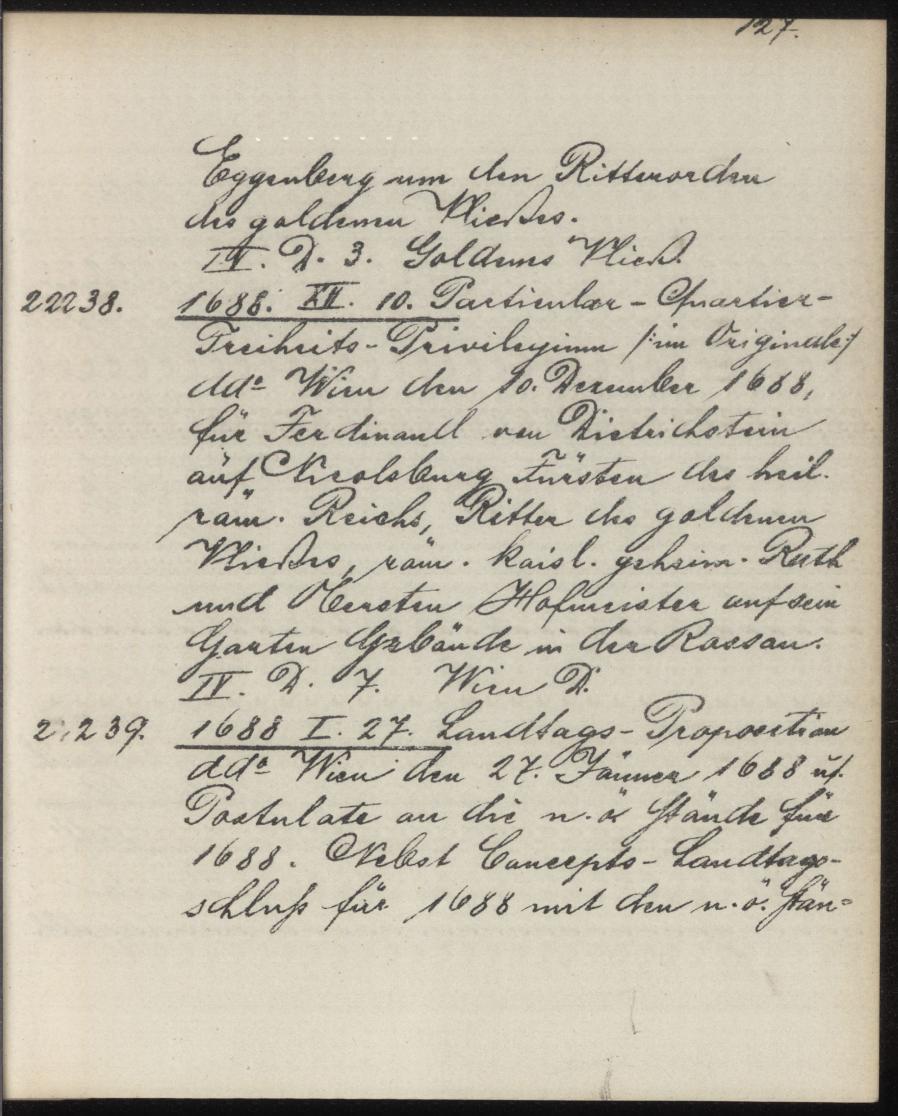 127.
Eggenberg um den Ritterorden
des goldenen Vließes.
IV. D. 3. Goldenes Vließ.
22238. 1688. XII. 10. Particular-Quartier-
Freiheits-Privilegium /:im Originale:/
ddo Wien den 10. Dezember 1688,
für Ferdinand von Dietrichstein
auf Nicolsburg Fürsten des heil.
röm. Reichs, Ritter des goldenen
Vließes, röm. kaisl. geheim. Rath
und Obersten Hofmeister auf sein
Garten Gebäude in der Rossau.
IV. D. 7. Wien D.
22239. 1688 I. 27. Landtags-Proposition
ddo Wien den 27. Jänner 1688 u.
Postulate an die n.ö Stände für
1688. Nebst Concepts-Landtags-
schluß für 1688 mit den n.ö. Stän=